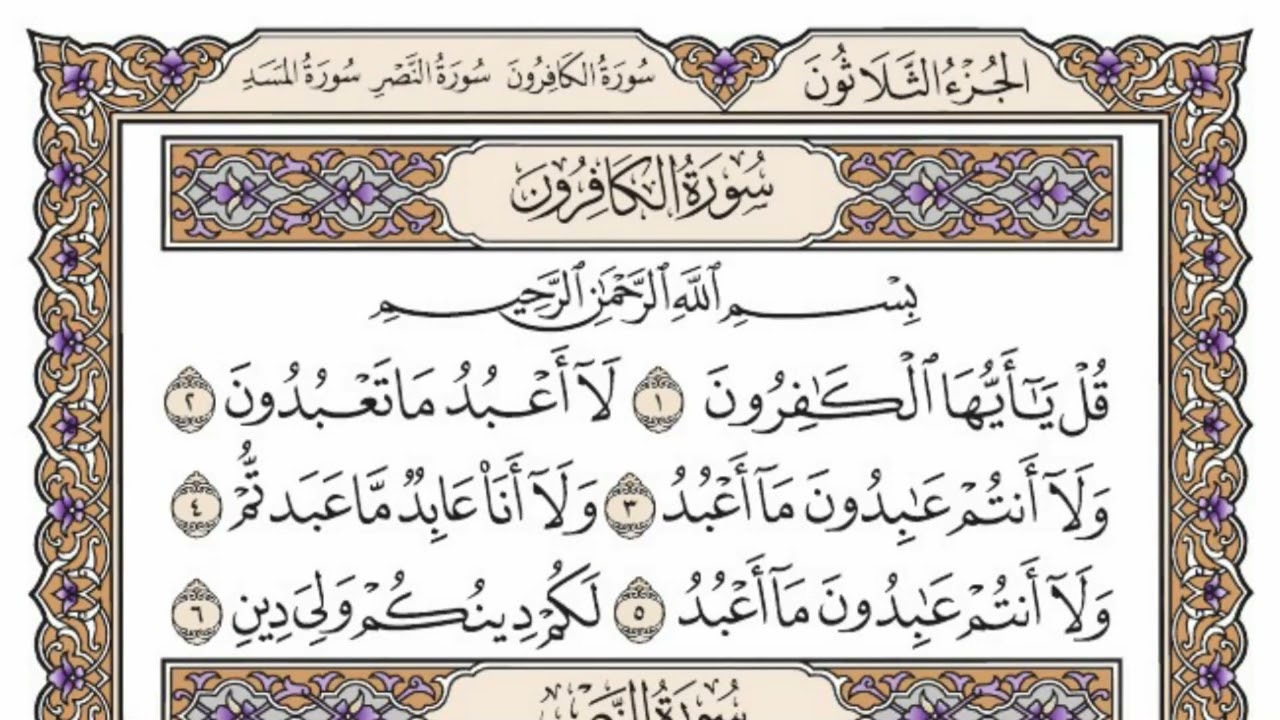 الجُزْءُ الثَّلَاثُونَ
سُورَةُ الكَافِرُونَ سُورَةُ النَّصْرِ سُورَةُ المَسَدِ
سُورَةُ الكَافِرُونَ
بِسْمِ ٱللَّهِ ٱلرَّحْمَٰنِ ٱلرَّحِيمِ
قُلْ يَٰٓأَيُّهَا ٱلْكَٰفِرُونَ ١ لَآ أَعْبُدُ مَا تَعْبُدُونَ ٢
وَلَآ أَنتُمْ عَٰبِدُونَ مَآ أَعْبُدُ ٣ وَلَآ أَنَا۠ عَابِدٌ مَّا عَبَدتُّمْ ٤
وَلَآ أَنتُمْ عَٰبِدُونَ مَآ أَعْبُدُ ٥ لَكُمْ دِينُكُمْ وَلِىَ دِينِ ٦
سُورَةُ النَّصْرِ